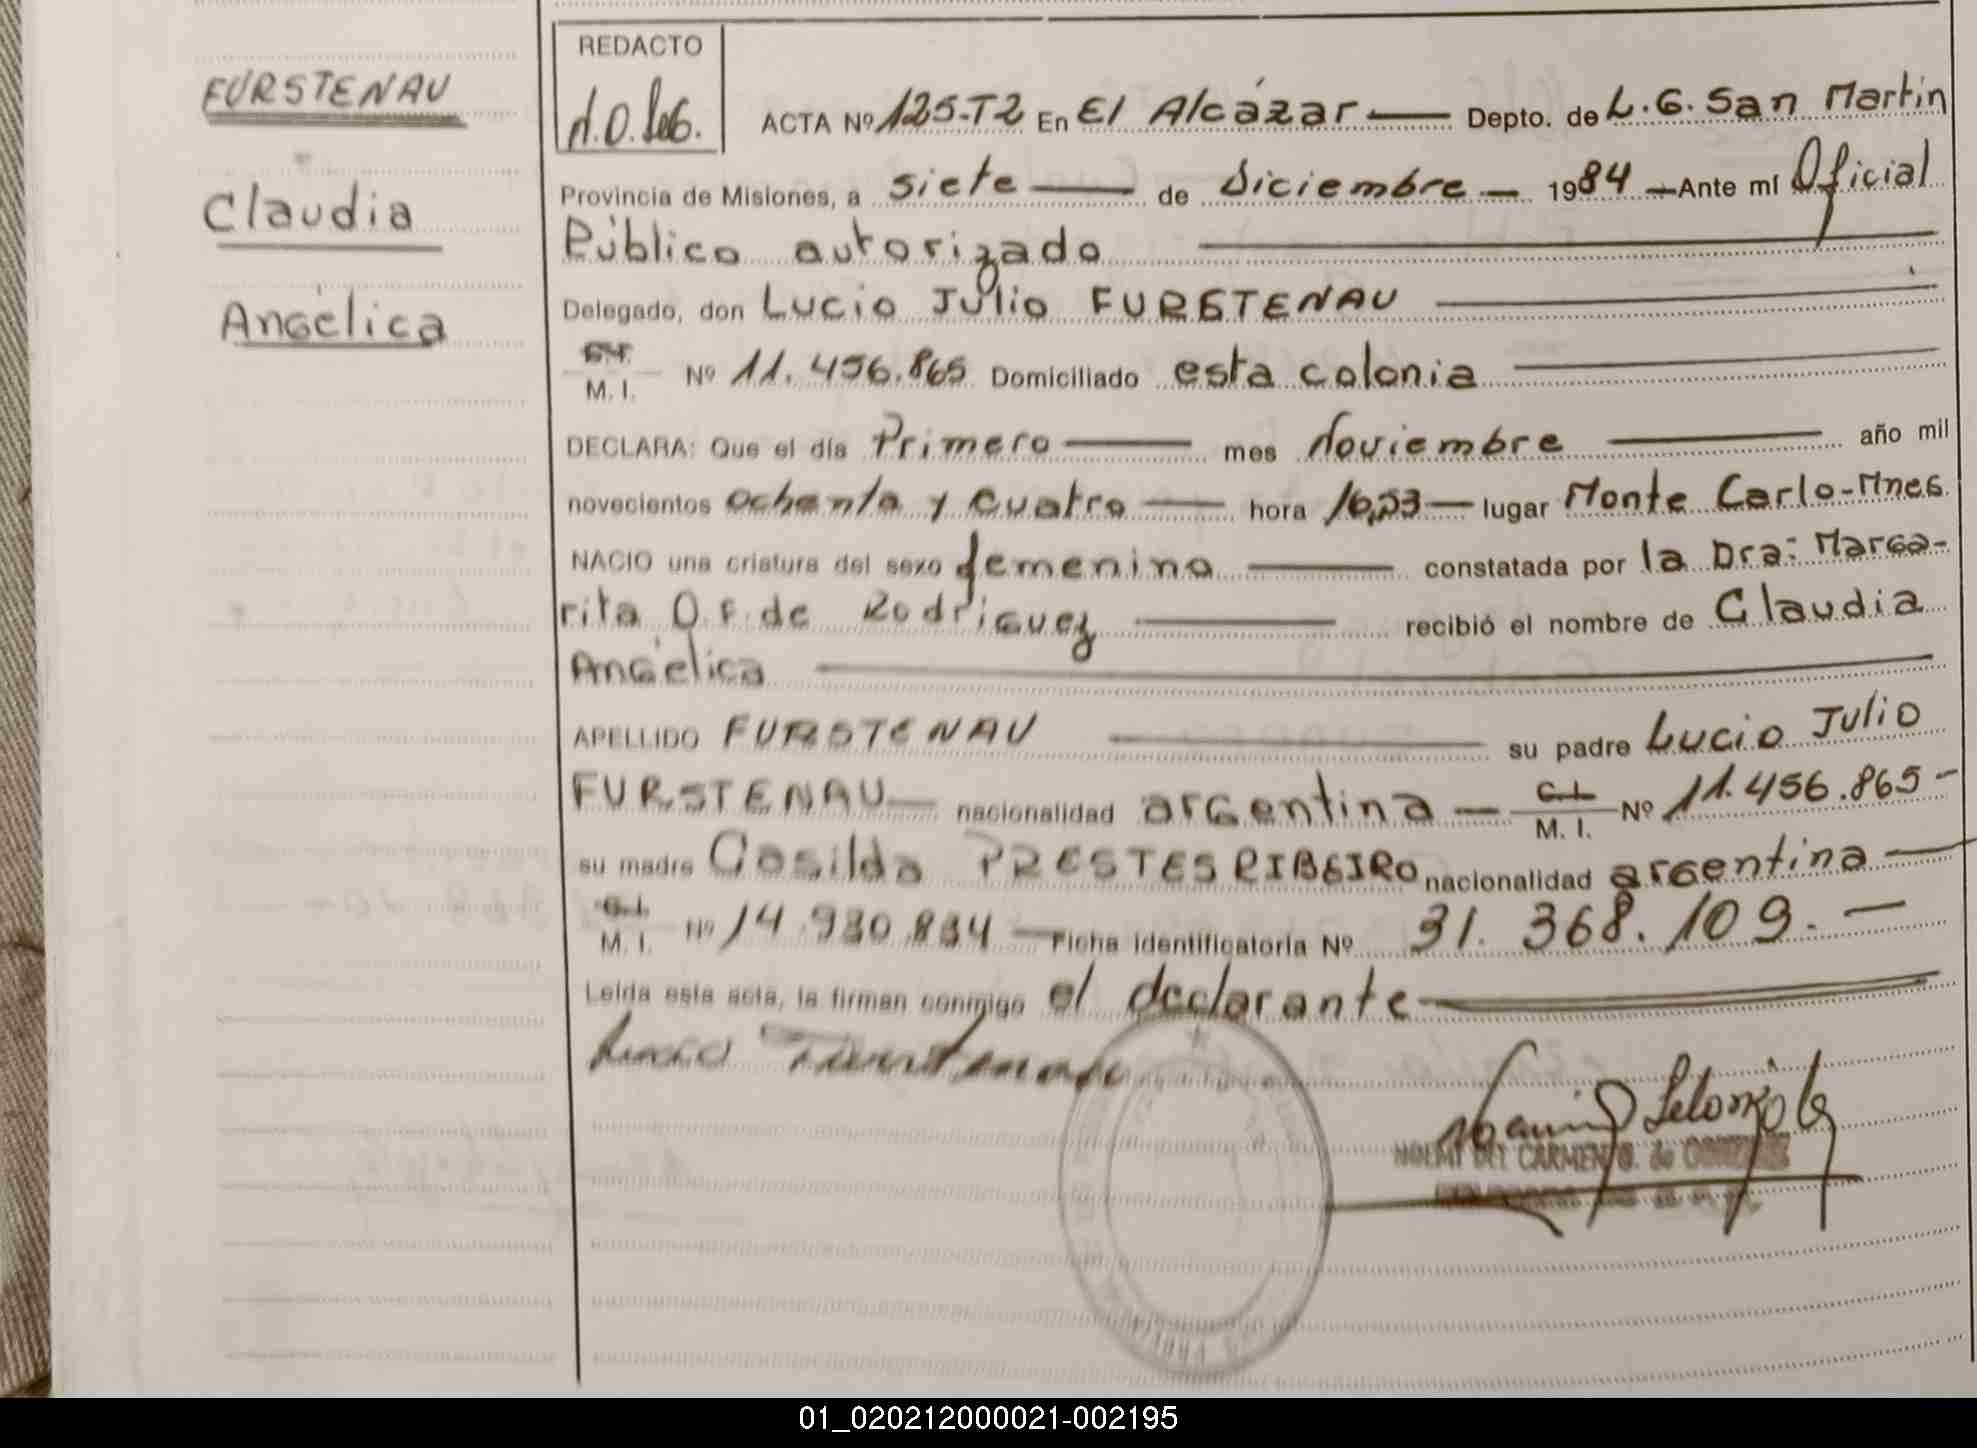 FURSTENAU
Claudia
Angélica
REDACTO
ACTA Nº 125-T2 En El Alcázar Depto. de L.G. San Martin
Provincia de Misiones, a siete de Diciembre 1984 Ante mí Oficial
Público autorizado
Delegado, don Lucio Julio FURSTENAU
M. I. Nº 11.456.865 Domiciliado esta colonia
DECLARA: Que el día Primero mes Noviembre año mil
novecientos ochenta y cuatro hora lugar Monte Carlo-Mnes
NACIO una criatura del sexo femenino constatada por la Dra: Marga-
rita O.F. de Rodriguez recibió el nombre de Claudia
Angélica
APELLIDO FURSTENAU su padre Lucio Julio
FURSTENAU nacionalidad argentina C.I. M. I. Nº 11.456.865-
su madre Casilda PRESTES RIBEIRO nacionalidad argentina
C.I. M. I. Nº 14.930.834 Ficha identificatoria Nº 31.368.109.-
Leída esta acta, la firman conmigo el declarante
Lucio Furstenau
NOEMI DEL CARMEN
01_020212000021-002195